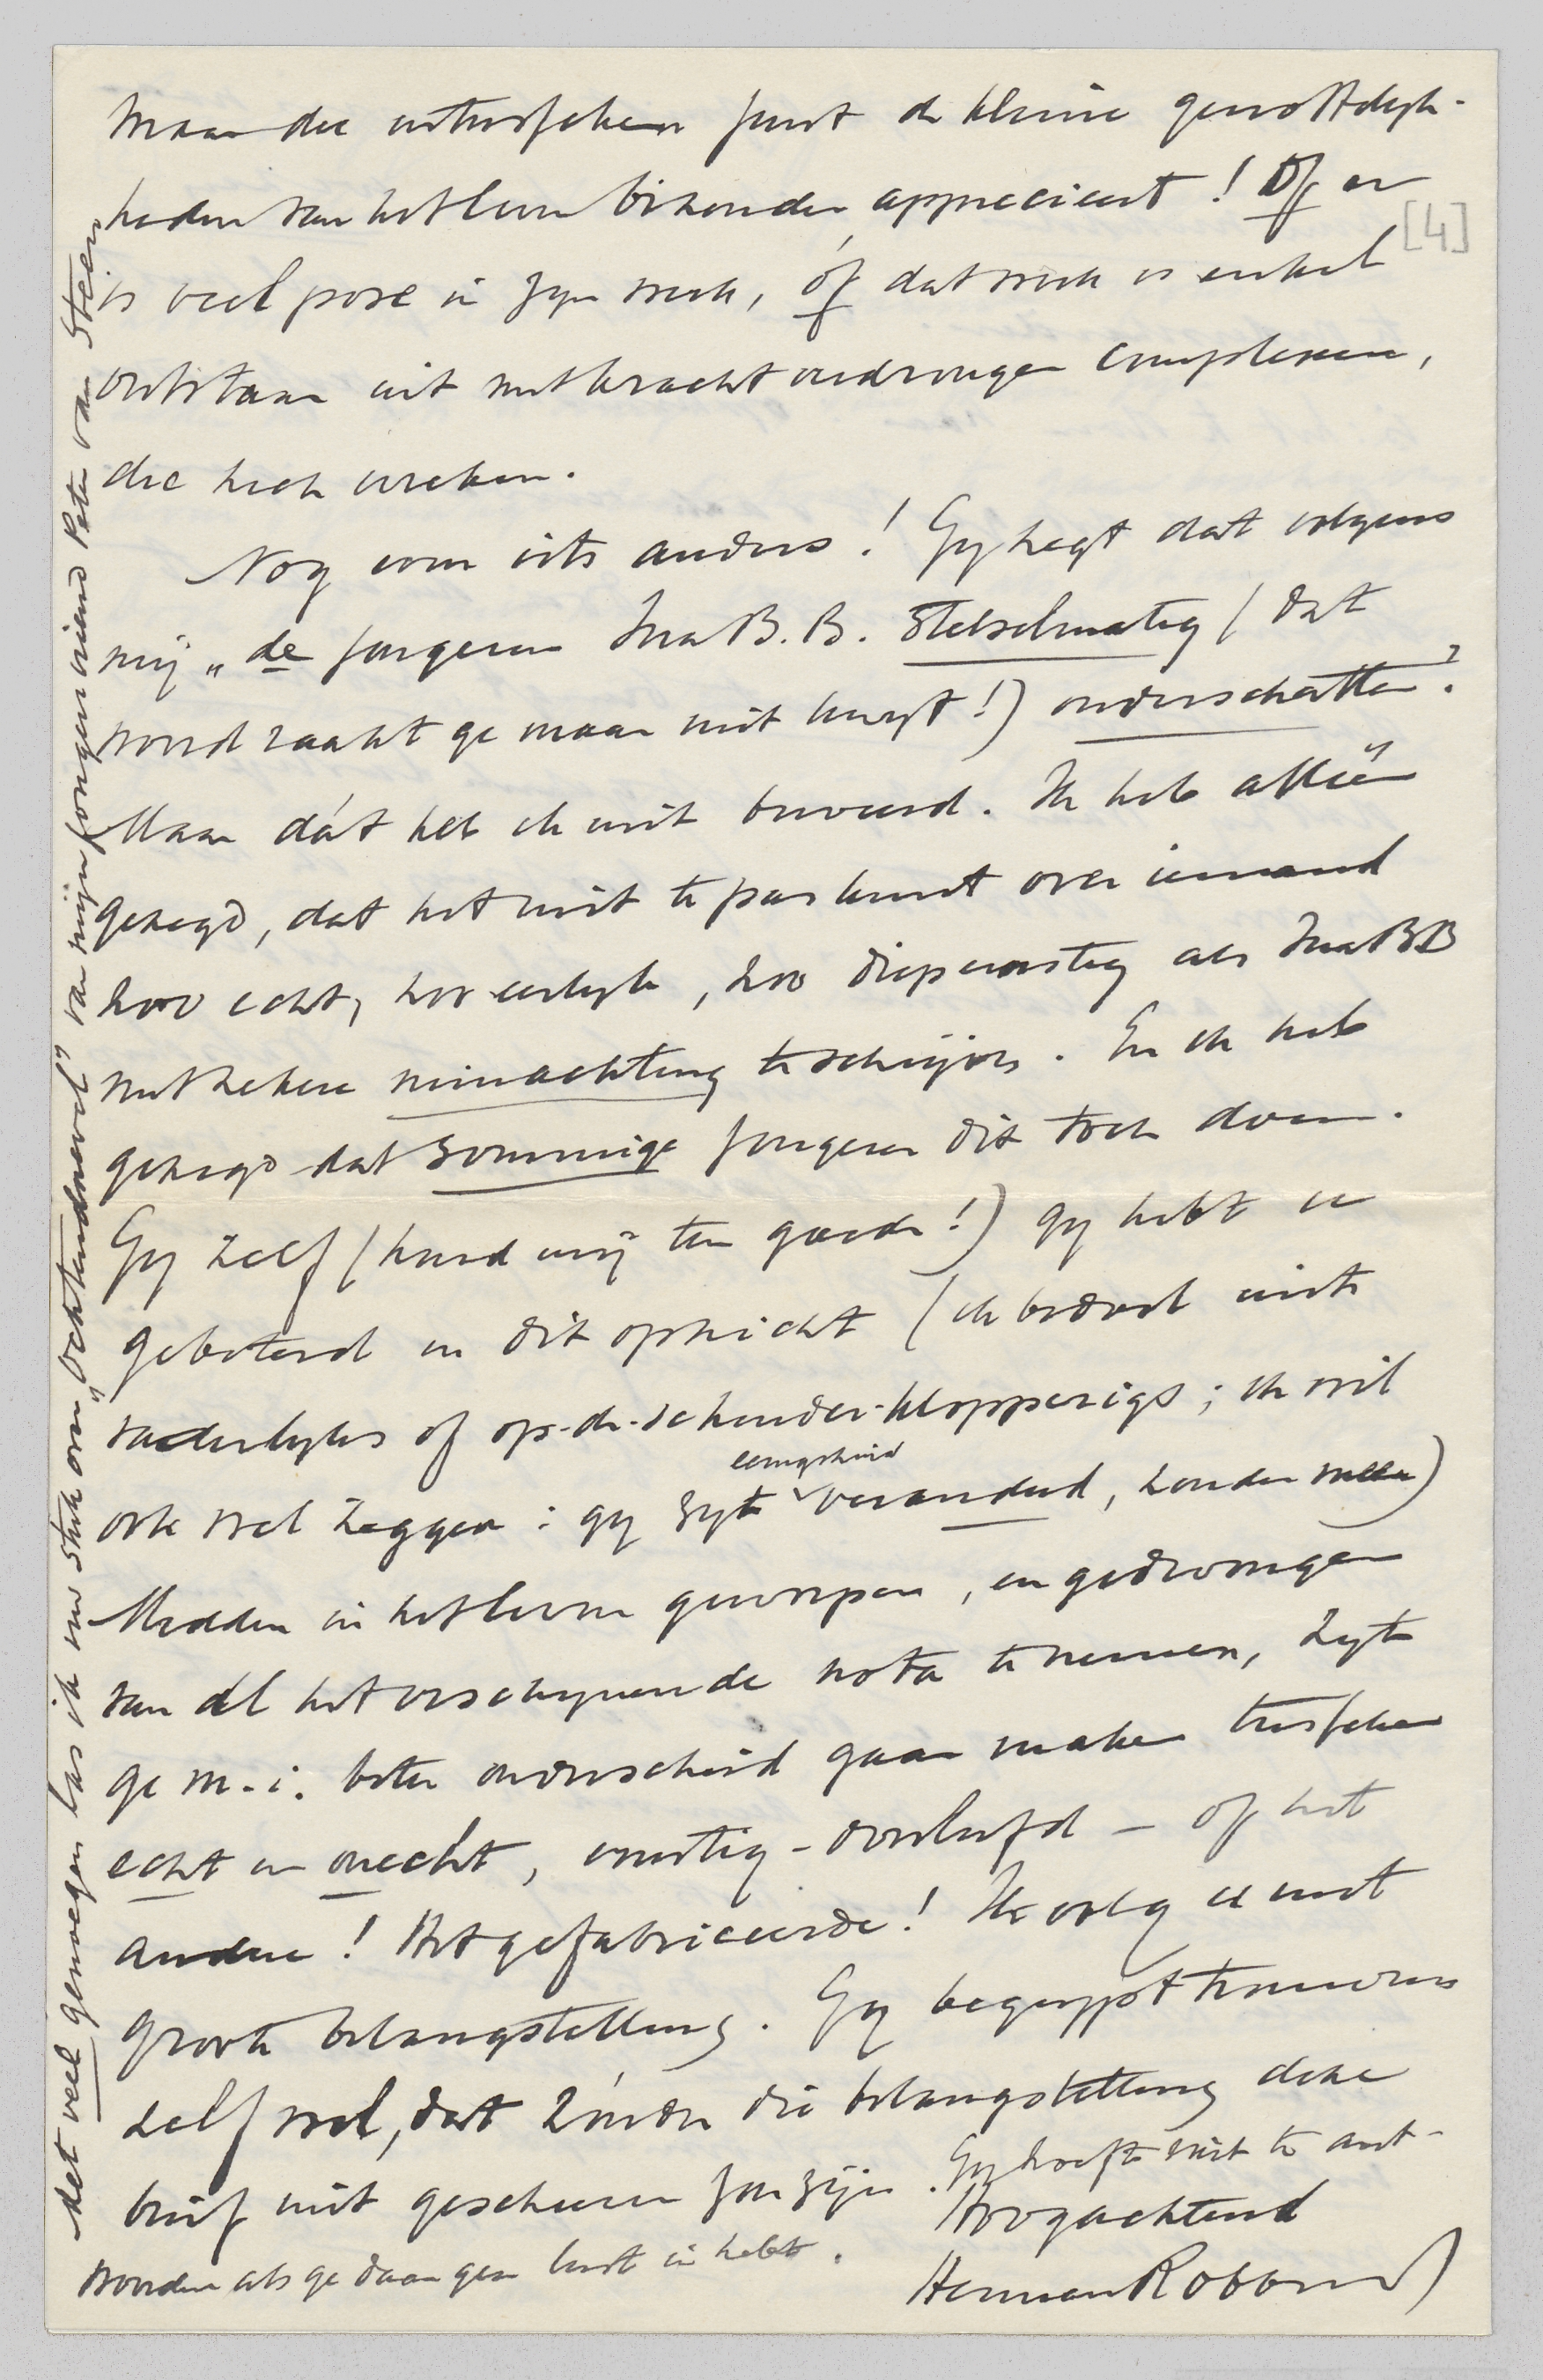 maar die intusschen juist de kleine genottelijk-
heden van het leven bizonder apprecieert! Òf er
[4]
is veel pose in zijn werk, òf dat werk is enkel
ontstaan uit met kracht verdrongen complexen,
die zich wreken.
Nog even iets anders! Gij zegt dat volgens
mij „de jongeren Ina B.B. stelselmatig (dat
woord raakt ge maar niet kwijt!) onderschatten?
Maar dát heb ik niet beweerd. Ik heb alléén
gezegd, dat het niet te pas komt over iemand
zoo echt, zoo eerlijk, zoo diepernstig als Ina BB
met zekere minachting te schrijven. En ik heb
gezegd dat sommige jongeren dit toch doen.
Gij zelf (houd mij ten goede!) gij hebt u
gebeterd in dit opzicht (ik bedoel niets
vaderlijks of op-de-schouder-klopperigs; ik wil
ook wel zeggen: gij zijt eenigszins veranderd, zonder meer)
Midden in het leven geworpen, en gedwongen
van àl het verschijnende nota te nemen, zijt
ge m.i. beter onderscheid gaan maken tusschen
echt en onecht, ernstig-doorleefd – of het
andere! Het gefabriceerde! Ik volg u met
groote belangstelling. Gij begrijpt trouwens
zelf wel, dat zónder die belangstelling deze
brief niet geschreven zou zijn. Gij hoeft niet te ant-
woorden als ge daar geen lust in hebt.
Hoogachtend
Herman Robbers
Met veel genoegen las ik uw stuk over „Ochtendnevel" van mijn jongen vriend Peter van Steen